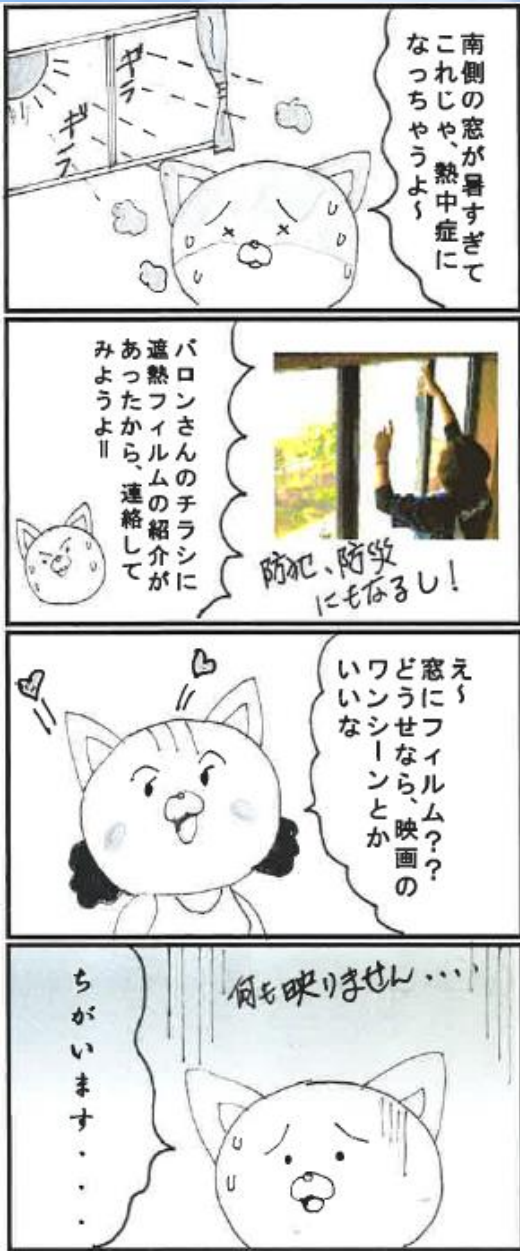 南側の窓が暑すぎて
これじゃ、熱中症に
なっちゃうよ～
ギラ
ギラ
防犯、防災
にもなるし！
バロンさんのチラシに
遮熱フィルムの紹介が
あったから、連絡して
みようよ‼
え～
窓にフィルム？？
どうせなら、映画の
ワンシーンとか
いいな
何も映りません・・・・
ちがいます・・・・